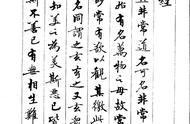 經
非常道名可名非常
始有名萬物之母故常
常有欲以觀其徼此
名同謂之玄玄之又玄
知美之為美斯惡已皆
斯不善已有無相生難